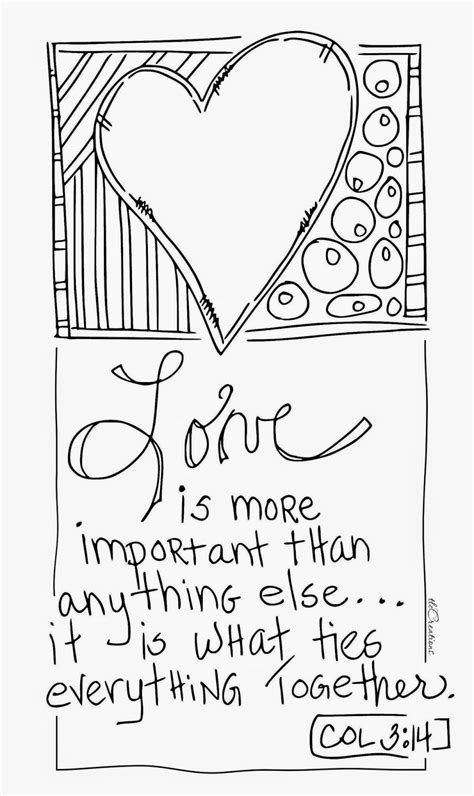 Love
is more
important than
anything else...
it is what ties
everything together.
COL 3:14